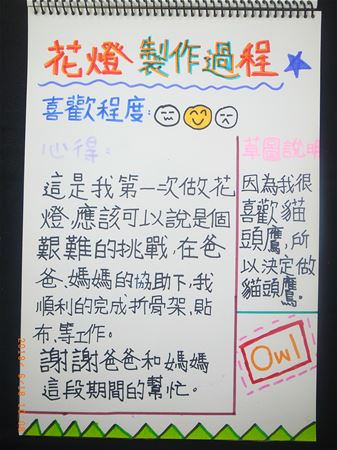 花燈製作過程
喜歡程度:
心得:
這是我第一次做花
燈,應該可以說是個
艱難的挑戰,在爸
爸、媽媽的協助下,我
順利的完成折骨架、貼
布、等工作。
謝謝爸爸和媽媽
這段期間的幫忙。
草圖說明
因為我很
喜歡貓
頭鷹,所
以決定做
貓頭鷹。
Owl